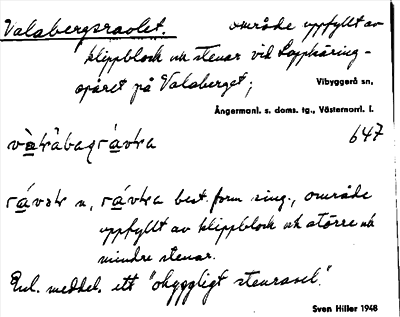 Valabergsravlet. område uppfyllt av
klippblock och stenar vid Lappkäring-
spåret på Valaberget;
Vibyggerå sn,
Ångermanl. s. doms. tg., Västernorrl. l.
647
n, best. form sing., område
uppfyllt av klippblock och större och
mindre stenar.
Enl. meddel. ett "ohyggligt stenrasel."
Sven Hiller 1948